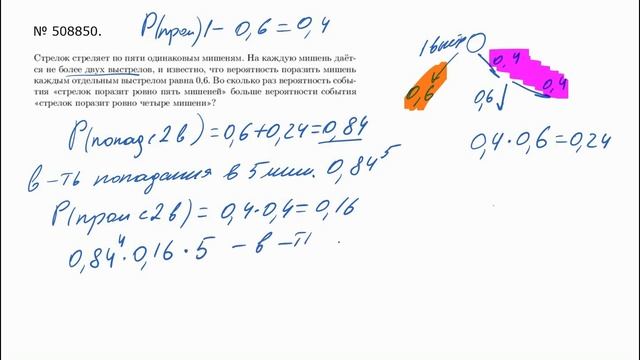 № 508850.
P(пром) 1 - 0,6 = 0,4
Стрелок стреляет по пяти одинаковым мишеням. На каждую мишень даёт-
ся не более двух выстрелов, и известно, что вероятность поразить мишень
каждым отдельным выстрелом равна 0,6. Во сколько раз вероятность собы-
тия «стрелок поразит ровно пять мишеней» больше вероятности события
«стрелок поразит ровно четыре мишени»?
1 выст
0,6
0,4
0,6
0,4
0,4·0,6=0,24
P(попад с 2 в) = 0,6+0,24=0,84
в-ть попадания в 5 миш. 0,84⁵
P(пром с 2 в) = 0,4·0,4=0,16
0,84⁴·0,16·5 - в-ть